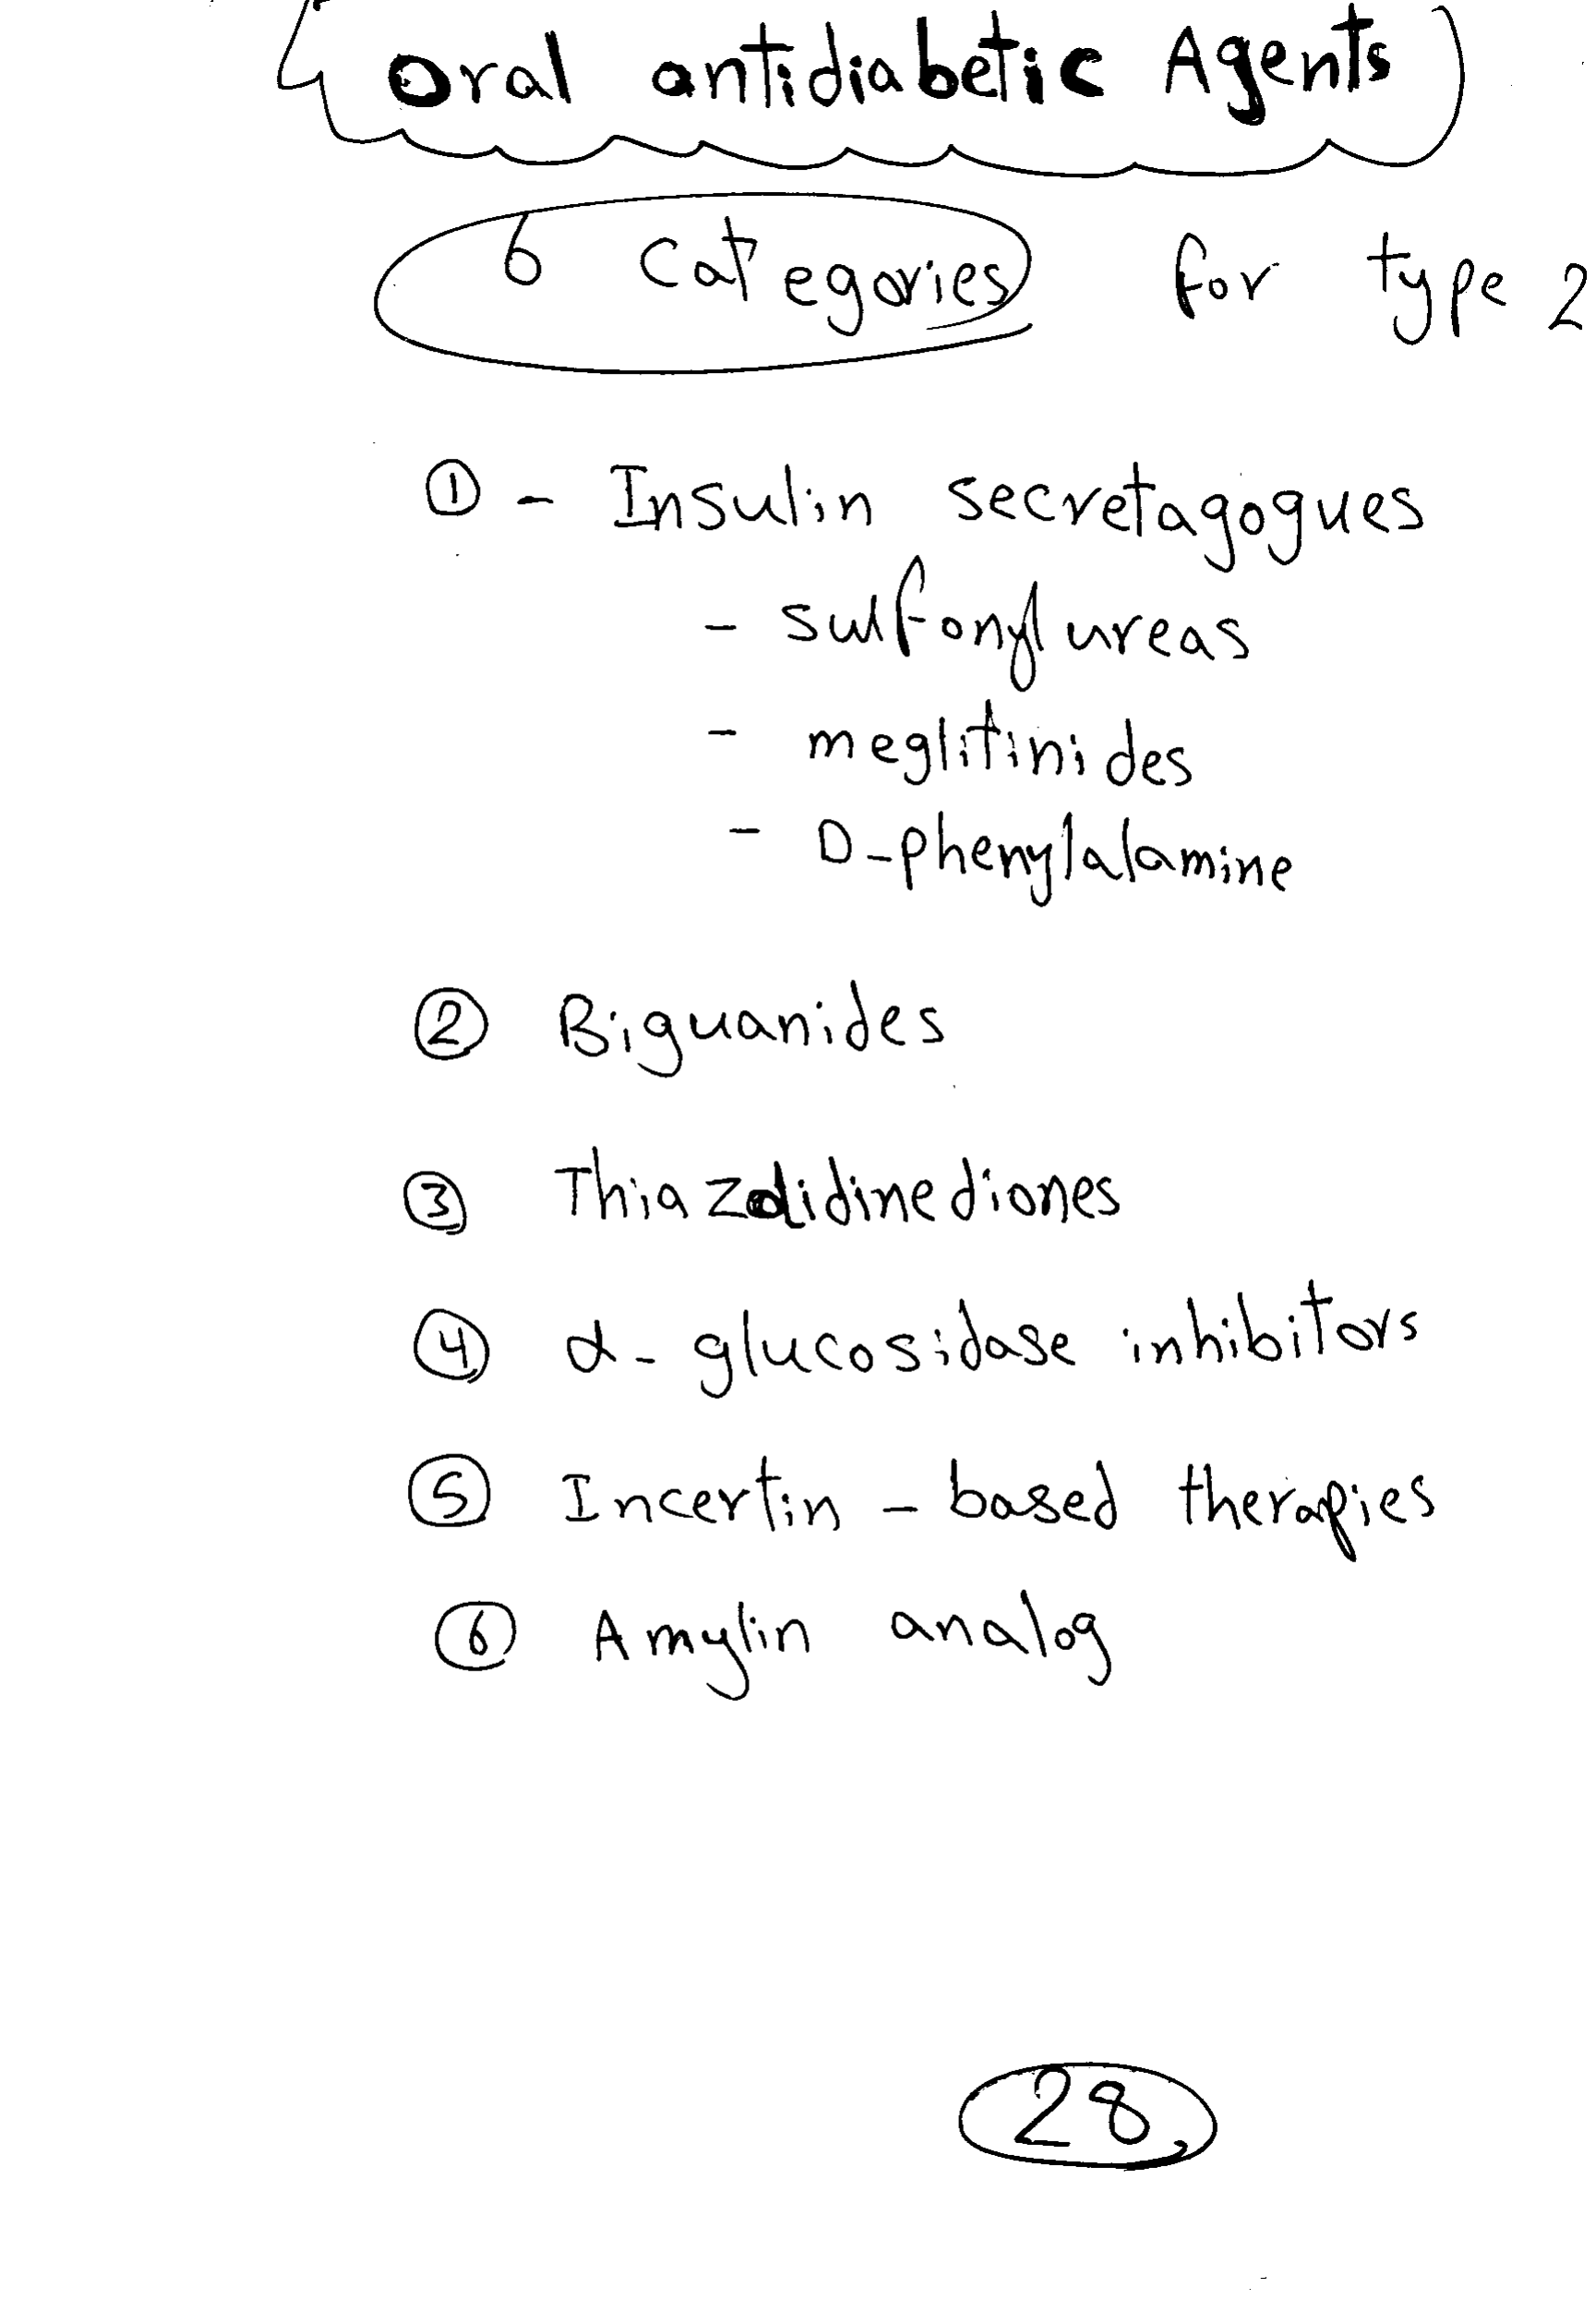 Oral antidiabetic Agents
6 Categories for type 2
① - Insulin secretagogues
- sulfonylureas
- meglitinides
- D-phenylalamine
② Biguanides
③ Thiazolidinediones
④ α-glucosidase inhibitors
⑤ Incertin-based therapies
⑥ Amylin analog
28